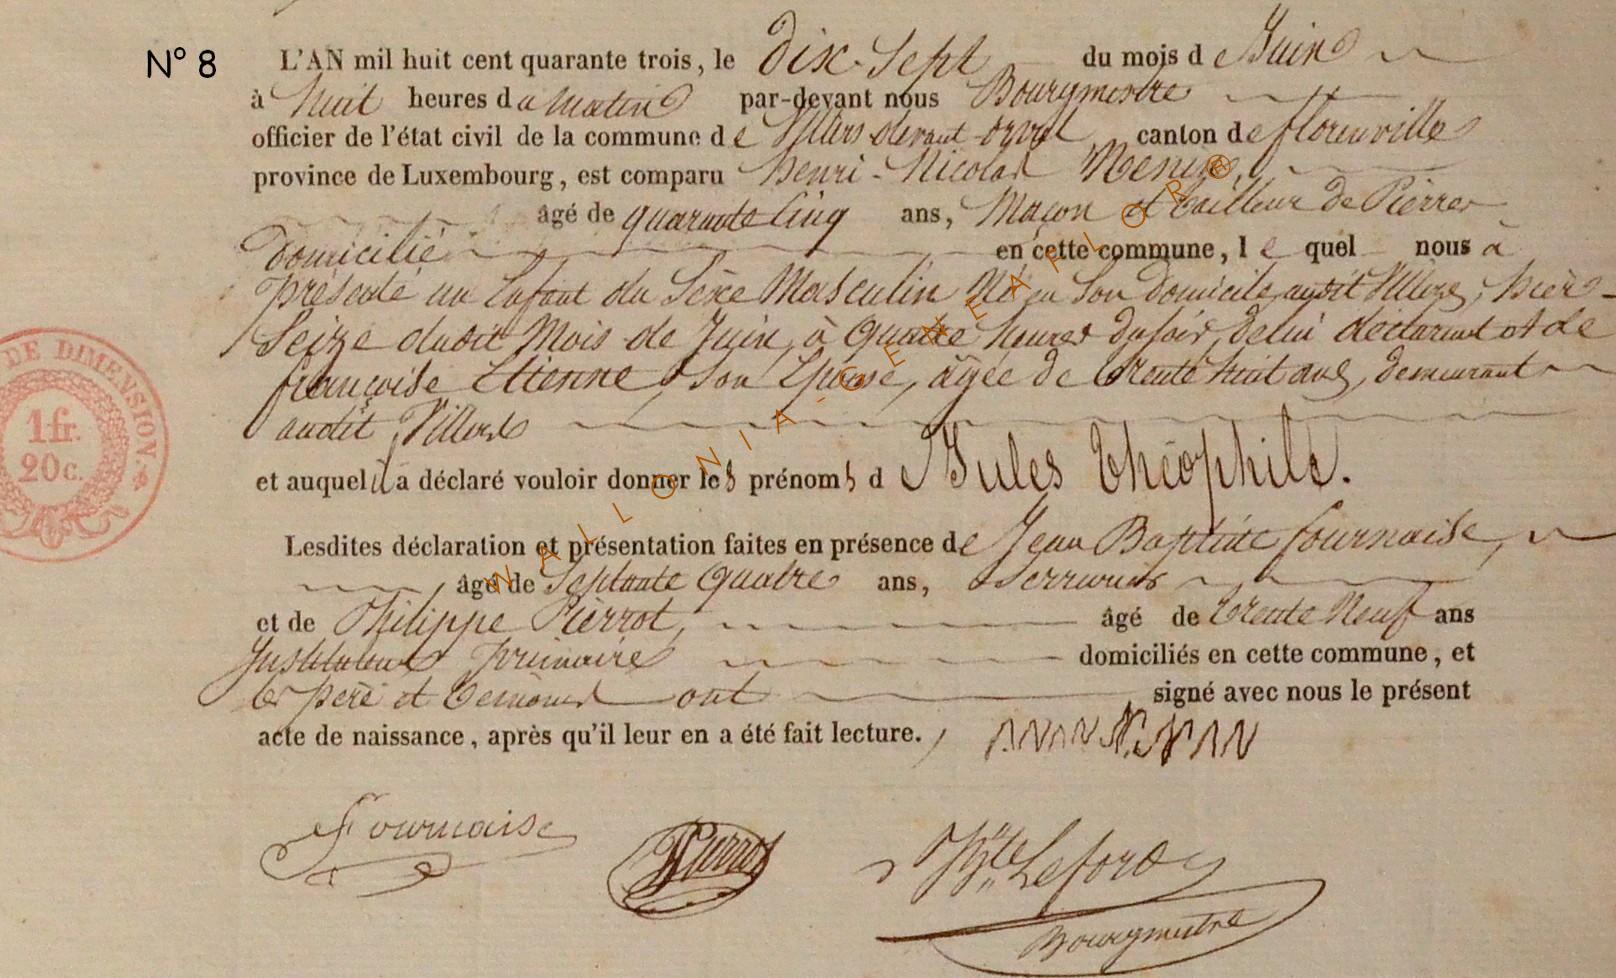 N° 8
L'AN mil huit cent quarante trois, le dix-Sept du mois de Juin
à huit heures du matin par-devant nous Bourgmestre
officier de l'état civil de la commune de Villers-devant-orval canton de florenville
province de Luxembourg, est comparu henri-Nicolas
âgé de quarante Cinq ans, Maçon et tailleur de Pierres
domicilié en cette commune, le quel nous à
présenté un Enfant du Sexe Masculin Né en Son domicile audit Villers, hièr
Seize dudit Mois de Juin, à quatre heures du soir, de lui déclarant et de
françoise Etienne, Son Epouse, âgée de trente huit ans, demeurant
audit Villers
et auquel il a déclaré vouloir donner les prénoms de Jules théophile.
Lesdites déclaration et présentation faites en présence de Jean Baptiste fournaise,
âgé de Septante Quatre ans, Serrurier
et de Philippe Pierrot, âgé de trente Neuf ans
Instituteur Primaire domiciliés en cette commune, et
le père et témoins ont signé avec nous le présent
acte de naissance, après qu'il leur en a été fait lecture.
Fournaise
Pierrot
Bourgmestre
DE DIMENSION.
1 fr.
20 c.
WALLONIA-GENEAFLOR®